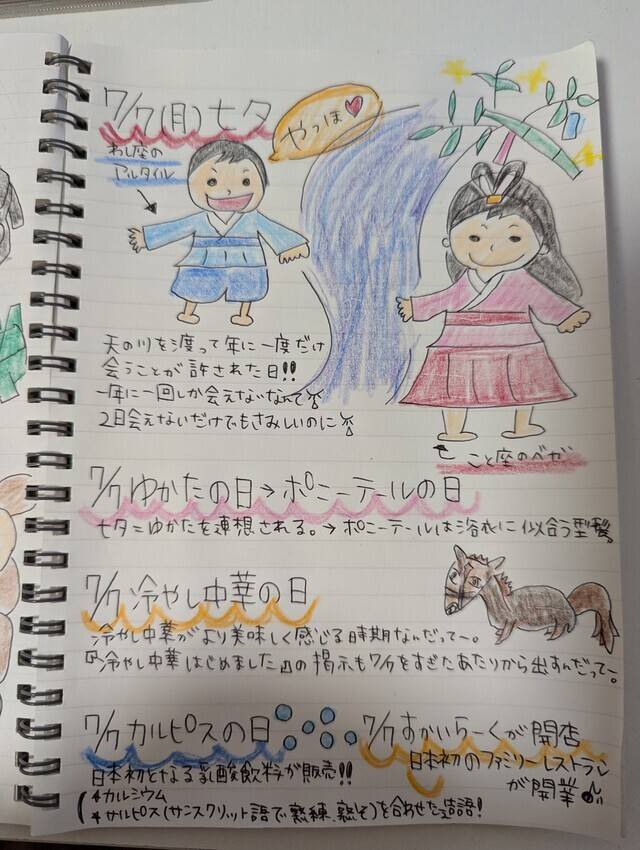 7/7(日)七夕
やっほ
わし座の
アルタイル
天の川を渡って年に一度だけ
会うことが許された日!!
一年に一回しか会えないなんて
2日会えないだけでもさみしいのに
こと座のベガ
7/7 ゆかたの日→ポニーテールの日
七夕=ゆかたを連想される。→ポニーテールは浴衣に似合う型髪。
7/7 冷やし中華の日
冷やし中華がより美味しく感じる時期なんだってー。
『冷やし中華はじめました』の掲示も7/7をすぎたあたりから出すんだってー。
7/7 カルピスの日
日本初となる乳酸飲料が販売!!
*カルシウム
*サルピス(サンスクリット語で熟練、熟そ)を合わせた造語!
7/7 すかいらーくが開店
日本初のファミリーレストラン
が開業